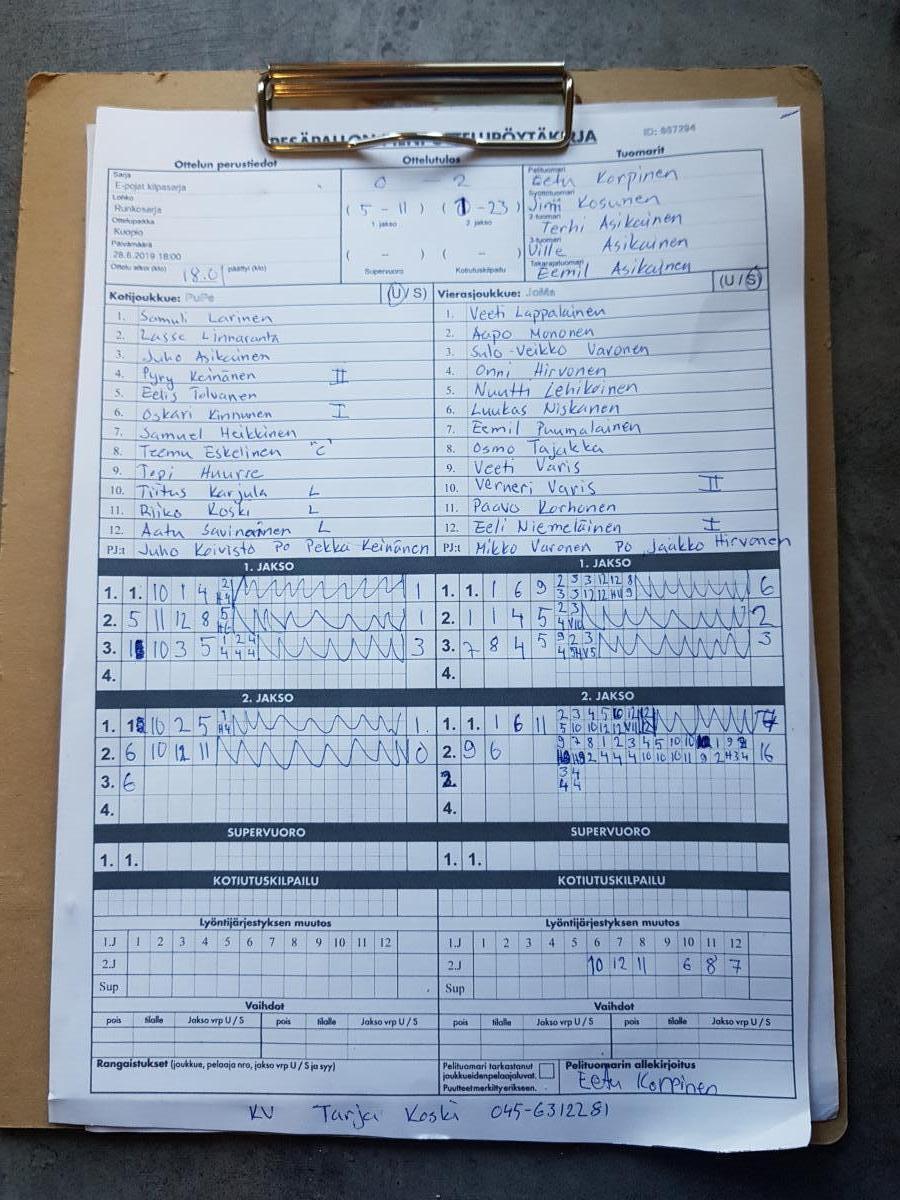 OTTELUPÖYTÄKIRJA
ID: 667294
Ottelun perustiedot
Sarja
E-pojat kilpasarja
Lohko
Runkosarja
Ottelupaikka
Kuopio
Päivämäärä
28.6.2019 18:00
Ottelu alkoi (klo) 18.01 päättyi (klo)
Ottelutulos
0 - 2
( 5 - 11 ) ( 1 - 23 )
1. jakso 2. jakso
( - ) ( - )
Supervuoro Kotiutuskilpailu
Tuomarit
Pelituomari Eetu Korpinen
Syöttötuomari Jimi Kosunen
2-tuomari Terhi Asikainen
3-tuomari Ville Asikainen
Takarajatuomari Eemil Asikainen
Kotijoukkue: PuPe (U/S)
1. Samuli Larinen
2. Lasse Linnaranta
3. Juho Asikainen
4. Pyry Keinänen II
5. Eelis Tolvanen
6. Oskari Kinnunen I
7. Samuel Heikkinen
8. Teemu Eskelinen "C"
9. Topi Huurre
10. Tiitus Karjula L
11. Riiko Koski L
12. Aatu Savinainen L
PJ:t Juho Koivisto PO Pekka Keinänen
Vierasjoukkue: JoMa (U/S)
1. Veeti Lappalainen
2. Aapo Mononen
3. Sulo-Veikko Varonen
4. Onni Hirvonen
5. Nuutti Lehikoinen
6. Luukas Niskanen
7. Eemil Puumalainen
8. Osmo Tajakka
9. Veeti Varis
10. Verneri Varis II
11. Paavo Korhonen
12. Eeli Niemeläinen I
PJ:t Mikko Varonen PO Jaakko Hirvonen
1. JAKSO
1. 1. 10 1 4 1
2. 5 11 12 8 1
3. 10 3 5 3
4.
1. JAKSO
1. 1. 1 6 9 6
2. 1 1 4 5 2
3. 7 8 4 5 3
4.
2. JAKSO
1. 10 2 5 1
2. 6 10 12 11 0
3. 6
4.
2. JAKSO
1. 1. 1 6 11 7
2. 9 6 16
4.
SUPERVUORO
1. 1.
SUPERVUORO
1. 1.
KOTIUTUSKILPAILU
KOTIUTUSKILPAILU
Lyöntijärjestyksen muutos
1.J 1 2 3 4 5 6 7 8 9 10 11 12
2.J
Sup
Lyöntijärjestyksen muutos
1.J 1 2 3 4 5 6 7 8 9 10 11 12
2.J 10 12 11 6 8 7
Sup
Vaihdot
pois tilalle Jakso vrp U / S pois tilalle Jakso vrp U / S
Vaihdot
pois tilalle Jakso vrp U / S pois tilalle Jakso vrp U / S
Rangaistukset (joukkue, pelaaja nro, jakso vrp U / S ja syy)
Pelituomari tarkastanut
joukkueidenpelaajaluvat.
Puutteet merkitty erikseen.
Pelituomarin allekirjoitus
Eetu Korpinen
KU Tarja Koski 045-6312281